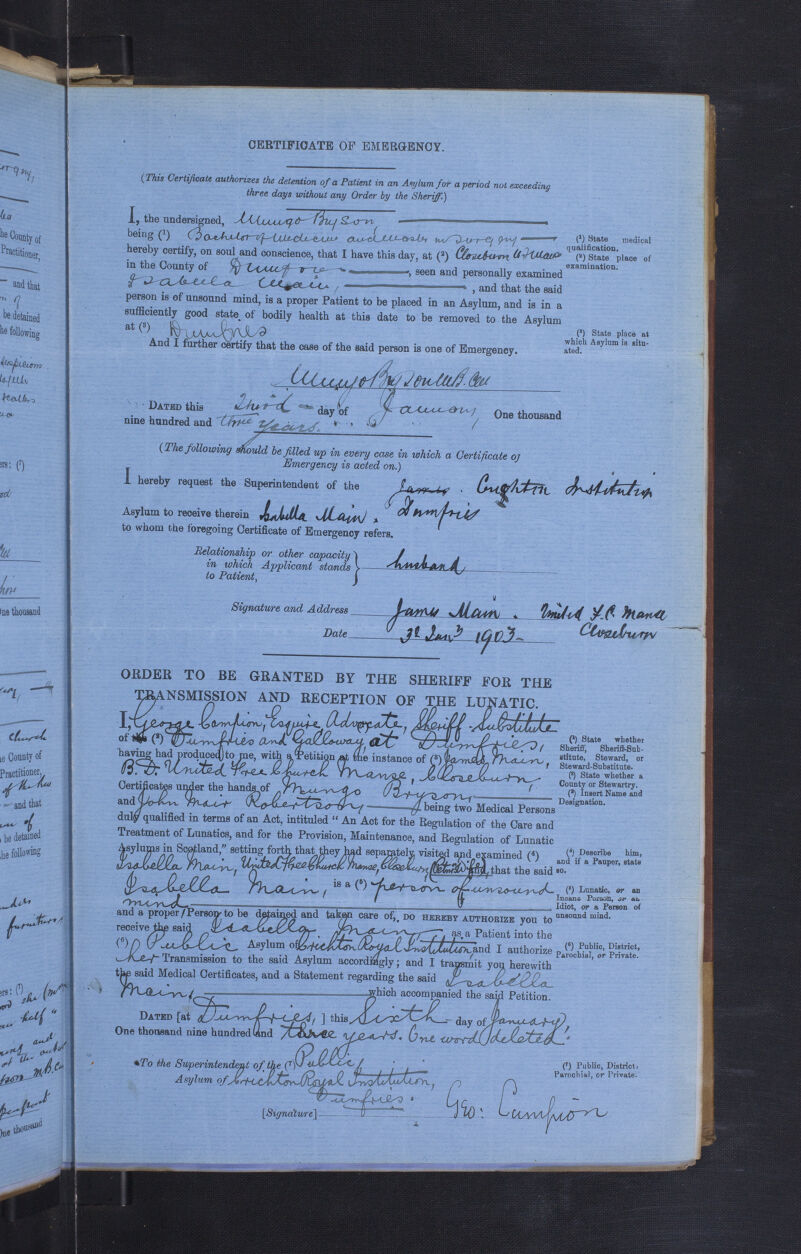 CERTIFICATE OF EMERGENCY.
(This Certificate authorizes the detention of a Patient in an Asylum for a period not exceeding
three days without any Order by the Sheriff.)
I, the undersigned, Mungo Bryson
being (¹) Bachelor of Medicine and Master in Surgery
(¹) State medical
qualification.
hereby certify, on soul and conscience, that I have this day, at (²) Closeburn Manse
(²) State place of
examination.
in the County of Dumfries, seen and personally examined
Isabella Main, and that the said
person is of unsound mind, is a proper Patient to be placed in an Asylum, and is in a
sufficiently good state of bodily health at this date to be removed to the Asylum
at (³) Dumfries
(³) State place at
which Asylum is situ-
ated.
And I further certify that the case of the said person is one of Emergency.
Mungo Bryson M.B. CM
DATED this Third day of January, One thousand
nine hundred and three years.
(The following should be filled up in every case in which a Certificate of
Emergency is acted on.)
I hereby request the Superintendent of the James. Crichton Institution
Asylum to receive therein Isabella Main. Dumfries
to whom the foregoing Certificate of Emergency refers.
Relationship or other capacity
in which Applicant stands
to Patient,
husband
Signature and Address James Main. United F.C. Manse
Closeburn
Date 3d Jany 1903
ORDER TO BE GRANTED BY THE SHERIFF FOR THE
TRANSMISSION AND RECEPTION OF THE LUNATIC.
I, George Campion, Esquire Advocate, (¹) Sheriff-Substitute
of the (²) Dumfries and Galloway at Dumfries,
(¹) State whether
Sheriff, Sheriff-Sub-
stitute, Steward, or
Steward-Substitute.
having had produced to me, with a Petition at the instance of (³) James Main,
B.D. United Free Church Manse, Closeburn,
(²) State whether a
County or Stewartry.
(³) Insert Name and
Designation.
Certificates under the hands of Mungo Bryson,
and John Mair Robertson, being two Medical Persons
duly qualified in terms of an Act, intituled "An Act for the Regulation of the Care and
Treatment of Lunatics, and for the Provision, Maintenance, and Regulation of Lunatic
Asylums in Scotland," setting forth that they had separately visited and examined (⁴)
(⁴) Describe him,
and if a Pauper, state
so.
Isabella Main, United Free Church Manse, Closeburn, and, that the said
Isabella Main, is a (⁵) person of unsound
mind
(⁵) Lunatic, or an
Insane Person, or an
Idiot, or a Person of
unsound mind.
and a proper Person to be detained and taken care of, DO HEREBY AUTHORIZE you to
receive the said Isabella Main as a Patient into the
(⁶) Public Asylum of Crichton Royal Institution, and I authorize
(⁶) Public, District,
Parochial, or Private.
her Transmission to the said Asylum accordingly; and I transmit you herewith
the said Medical Certificates, and a Statement regarding the said Isabella
Main, which accompanied the said Petition.
DATED [at Dumfries,] this Sixth day of January,
One thousand nine hundred and three years. One word deleted.
To the Superintendent of the (⁷) Public
Asylum of Crichton Royal Institution,
Dumfries.
(⁷) Public, District,
Parochial, or Private.
[Signature] Geo: Campion
he County of
Practitioner,
and that
be detained
he following
One thousand
Church
he County of
Practitioner,
and that
be detained
the following
furniture,
One thousand